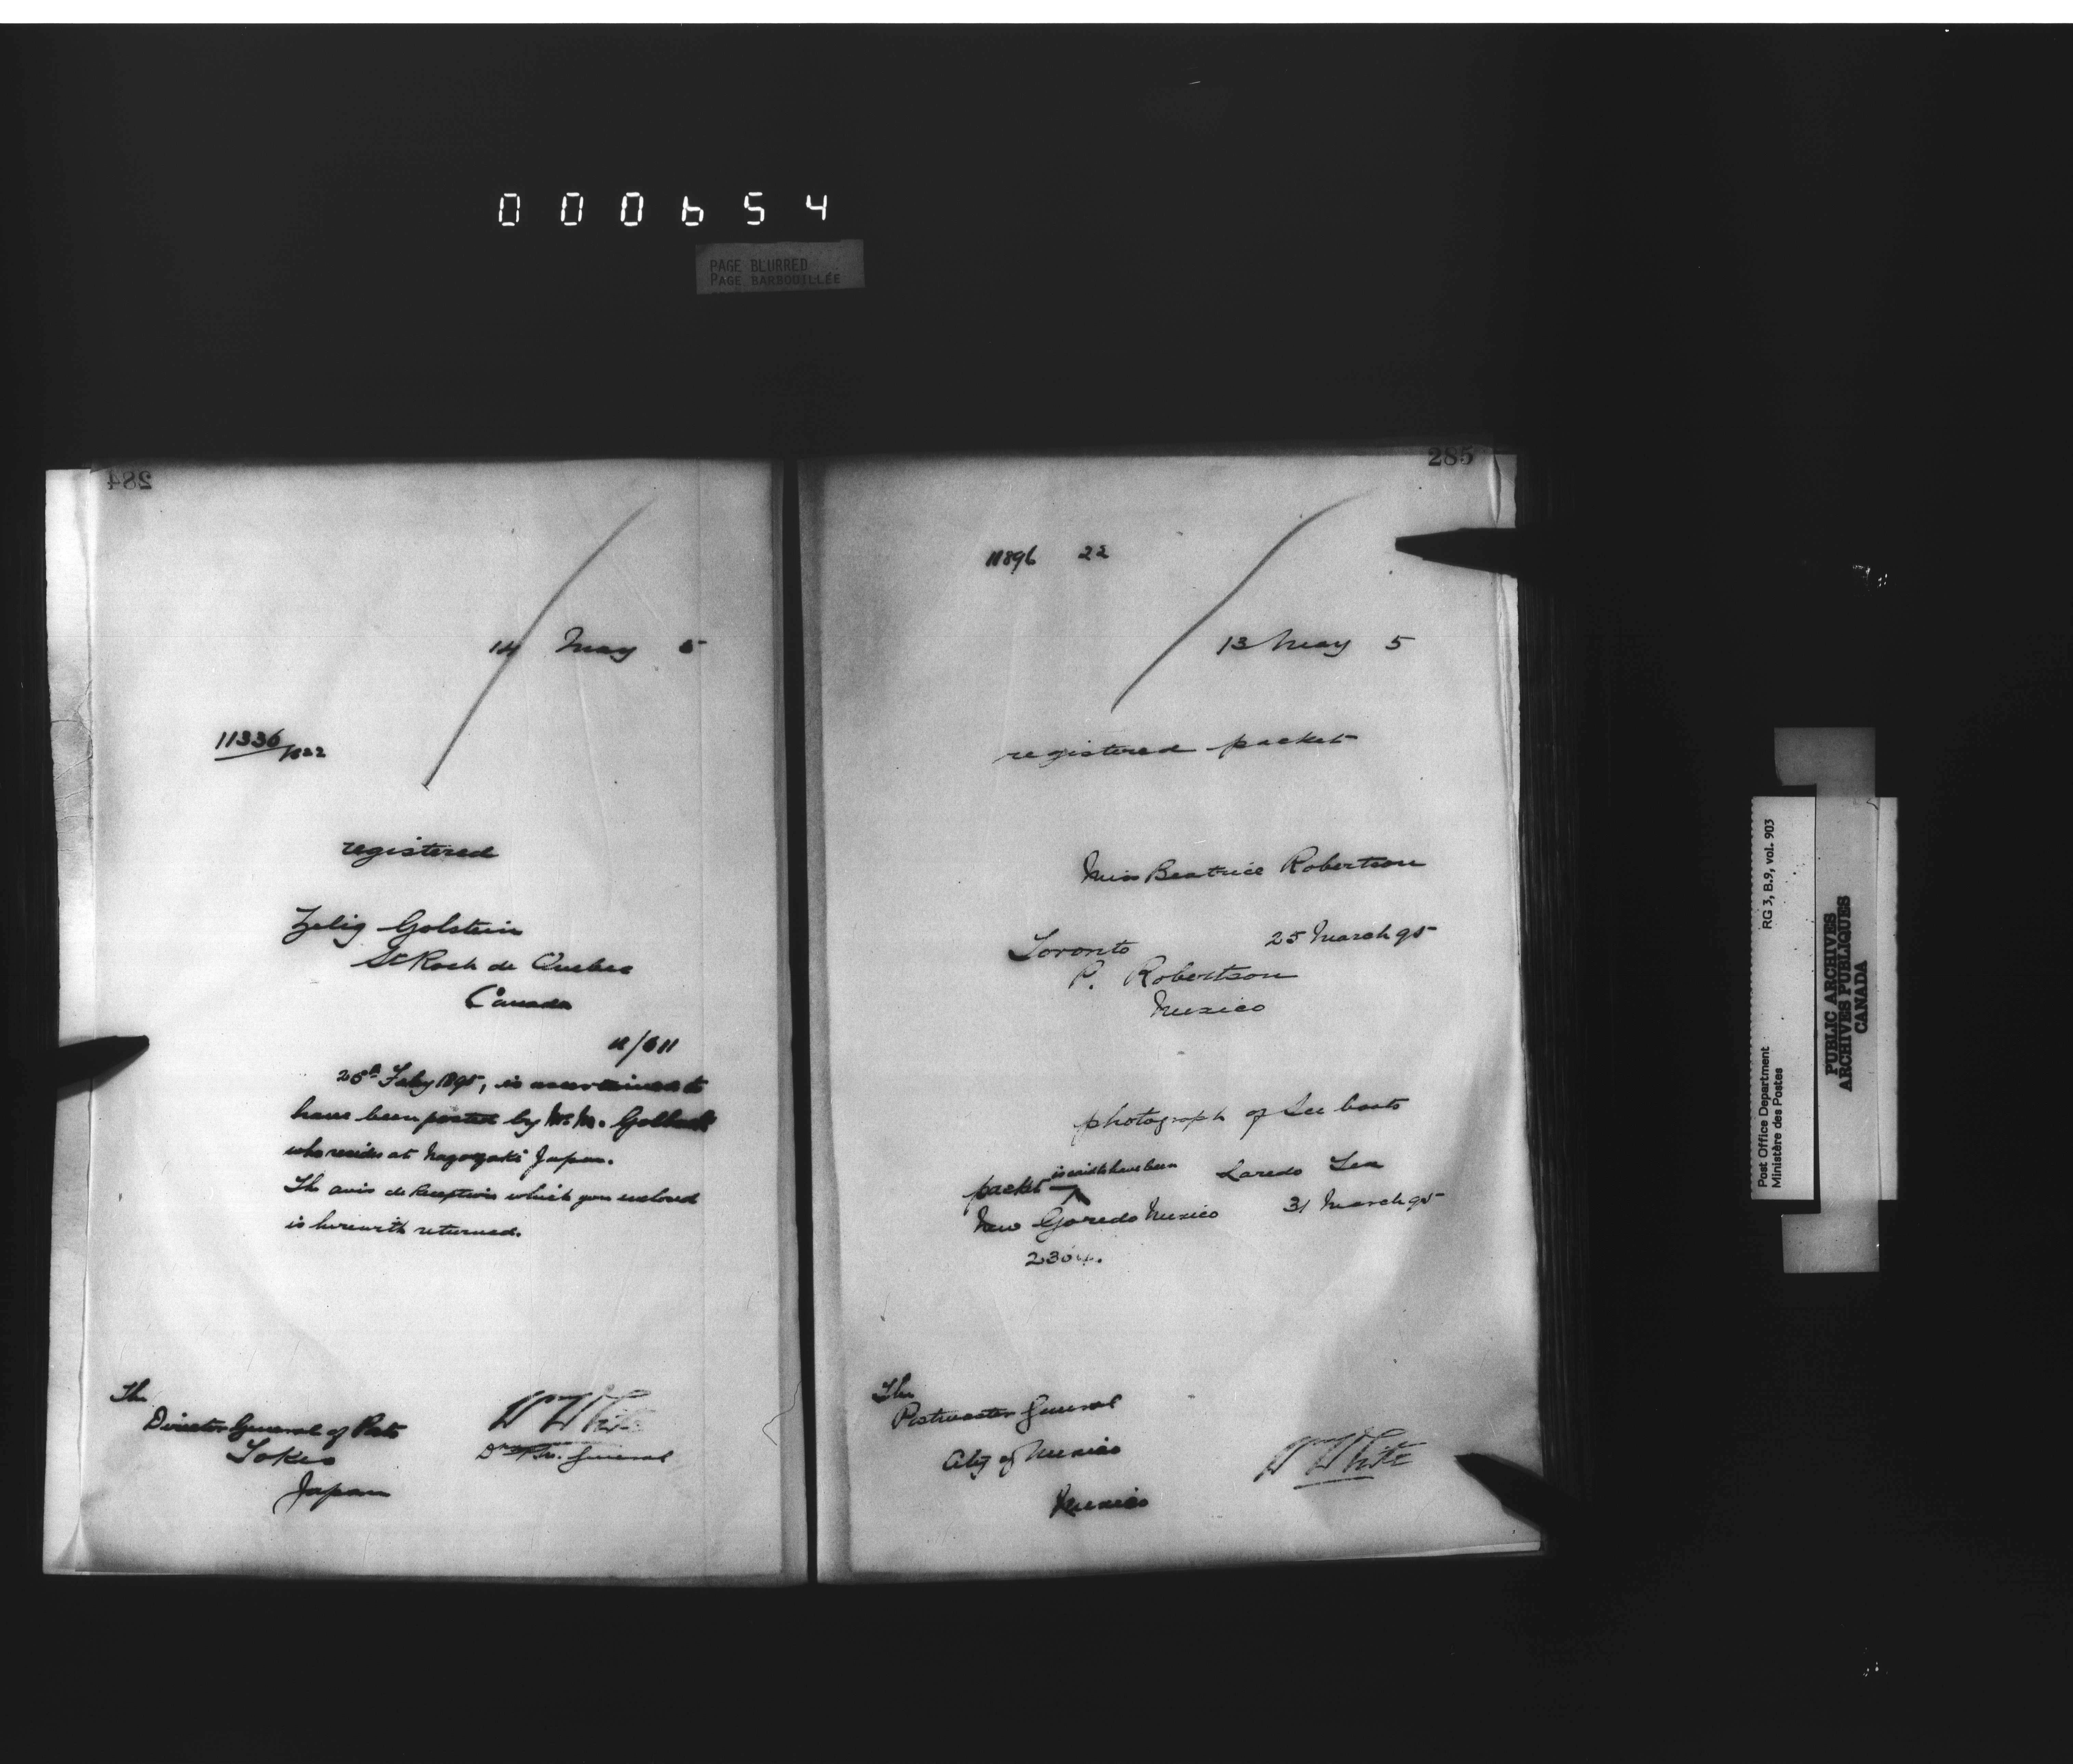 000654
PAGE BLURRED
PAGE BARBOUILLÉE
284
14 May 5
11336/822
registered
Zelig Golstein
St Roch de Quebec
Canada
11/611
25th Feby 1895, is ascertained to
have been posted by Mr M. Golback
who resides at Nagasaki Japan.
The avis de Reception which you enclosed
is herewith returned.
The
Director General of Posts
Tokio
Japan
W White
General
285
11896 22
13 May 5
registered packet
Miss Beatrice Robertson
Toronto 25 March 95
P. Robertson
Mexico
photograph of boats
packet is said to have been Laredo Tex
New Goredo Mexico 31 March 95
2304.
The
Postmaster General
City of Mexico
Mexico
W White
Post Office Department RG 3, B.9, vol. 903
Ministère des Postes
PUBLIC ARCHIVES
ARCHIVES PUBLIQUES
CANADA